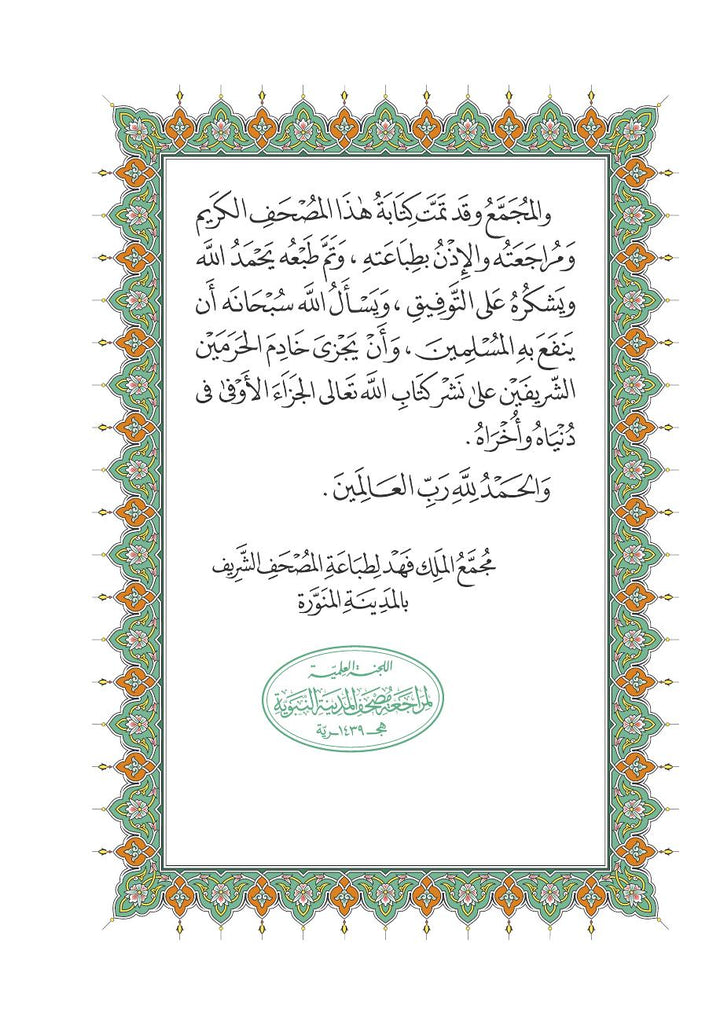 وَالمُجَمَّعُ وَقَد تَمَّت كِتَابَةُ هٰذَا المُصْحَفِ الكَرِيمِ
وَمُرَاجَعَتُه وَالإِذْنُ بِطِبَاعَتِهِ ، وَتَمَّ طَبْعُه يَحْمَدُ اللَّه
وَيَشكُرُهُ عَلى التَّوْفِيقِ ، وَيَسْأَلُ اللَّه سُبْحَانَه أَن
يَنفَعَ بِهِ المُسْلِمِينَ ، وَأَنْ يَجْزِىَ خَادِمَ الحَرَمَيْنِ
الشَّرِيفَيْنِ عَلىٰ نَشْرِ كِتَابِ اللَّه تَعَالى الجَزَاءَ الأَوْفىٰ فى
دُنْيَاهُ وأُخْرَاهُ .
وَالحَمْدُ لِلَّهِ رَبِّ العَالَمِينَ .
مُجَمَّعُ المَلِك فَهْد لِطِبَاعَةِ المُصْحَفِ الشَّرِيف
بالمَدِينَةِ المُنَوَّرَة
اللجنة العلميّة
لمراجعة مصحف المدينة النبوية
هجـ ١٤٣٩ ـريّة